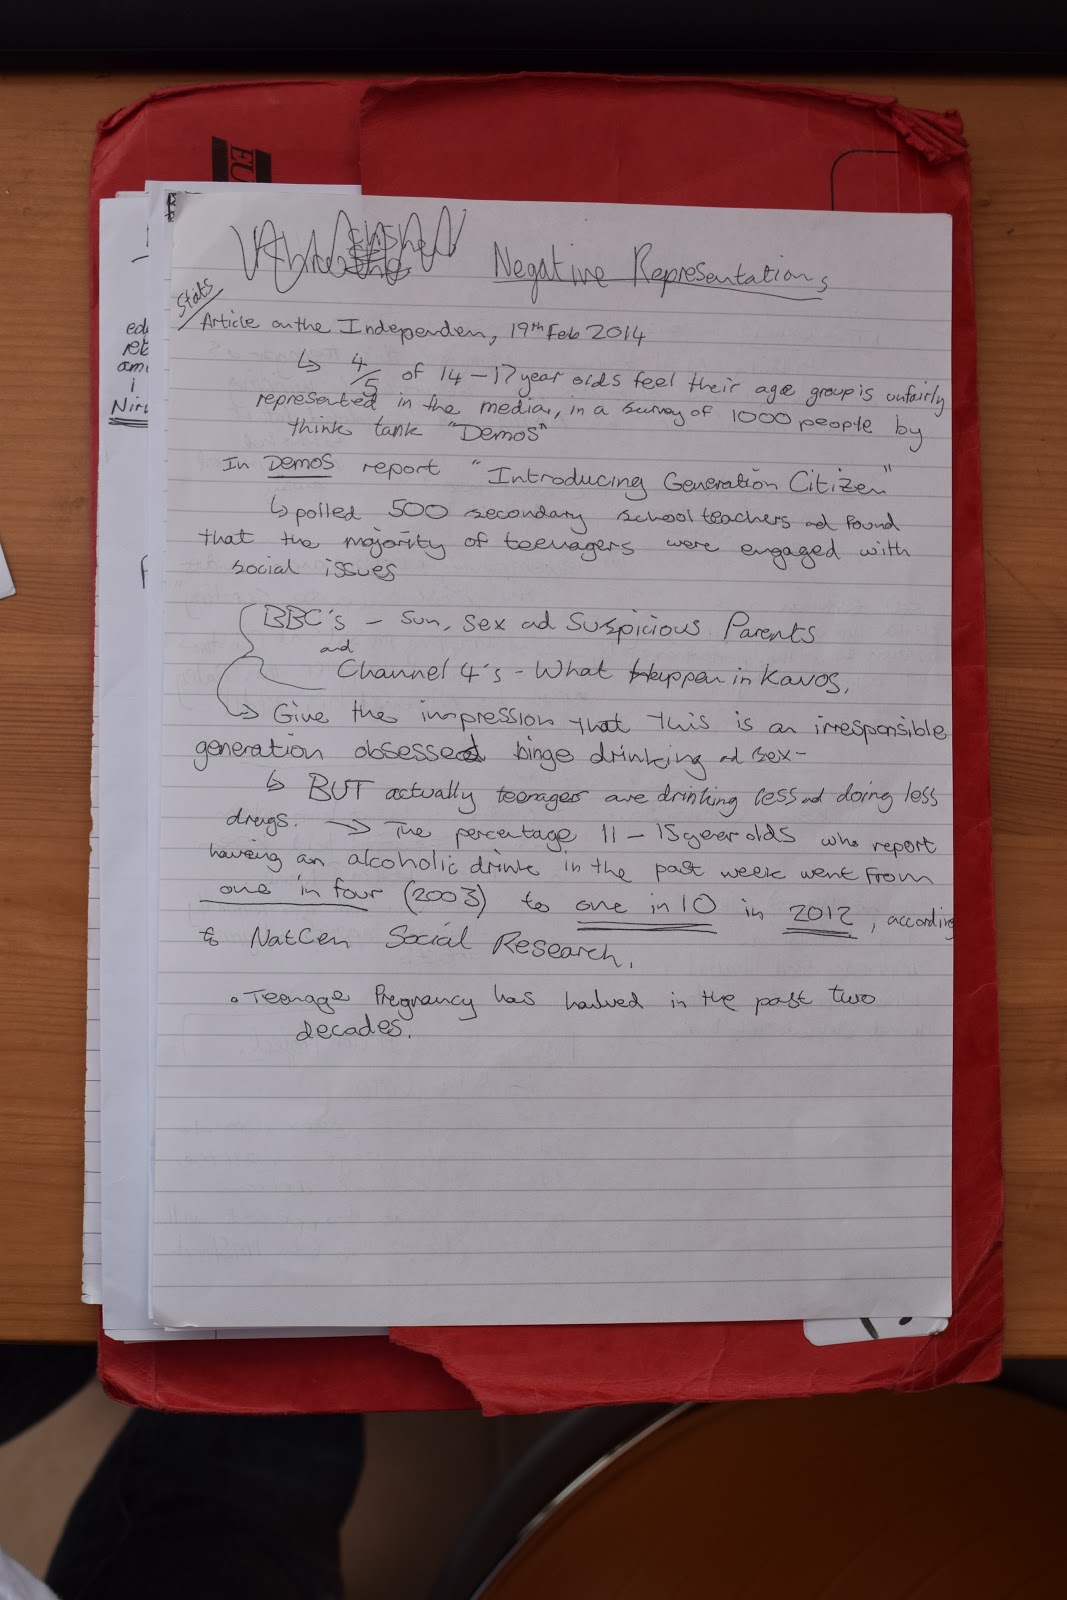 EU
Negative Representations
Stats
Article on the Independen, 19th Feb 2014
↳ 4/5 of 14-17 year olds feel their age group is unfairly
represented in the media, in a survey of 1000 people by
think tank "Demos"
In DEMOS report "Introducing Generation Citizen"
↳ polled 500 secondary school teachers ad found
that the majority of teenagers were engaged with
social issues
BBC's - Sun, Sex ad Suspicious Parents
and
Channel 4's - What Happen in Kavos.
→ Give the impression that this is an irresponsible
generation obsessed binge drinking ad sex-
↳ BUT actually teenages are drinking less ad doing less
drugs. → The percentage 11-15 year olds who report
having an alcoholic drink in the past week went from
one in four (2003) to one in 10 in 2012, according
to NatCen Social Research.
• Teenage Pregnancy has halved in the past two
decades.